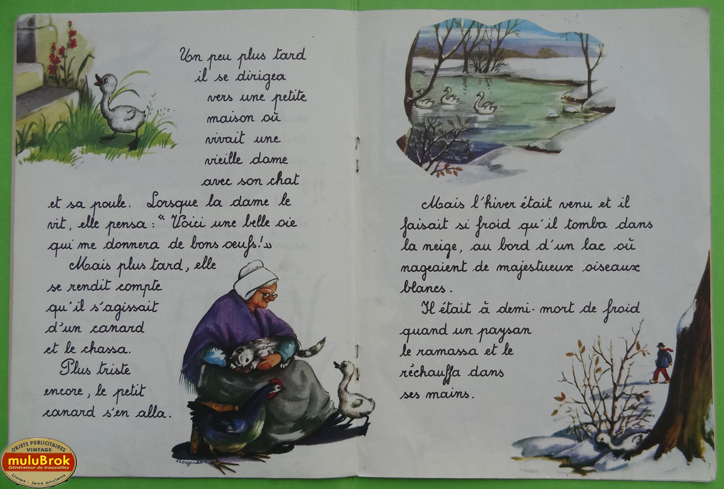 Un peu plus tard
il se dirigea
vers une petite
maison où
vivait une
vieille dame
avec son chat
et sa poule. Lorsque la dame le
vit, elle pensa : "Voici une belle oie
qui me donnera de bons œufs!"
Mais plus tard, elle
se rendit compte
qu'il s'agissait
d'un canard
et le chassa.
Plus triste
encore, le petit
canard s'en alla.
Mais l'hiver était venu et il
faisait si froid qu'il tomba dans
la neige, au bord d'un lac où
nageaient de majestueux oiseaux
blancs.
Il était à demi-mort de froid
quand un paysan
le ramassa et le
réchauffa dans
ses mains.
OBJETS PUBLICITAIRES
VINTAGE
muluBrok
Générateur de trouvailles